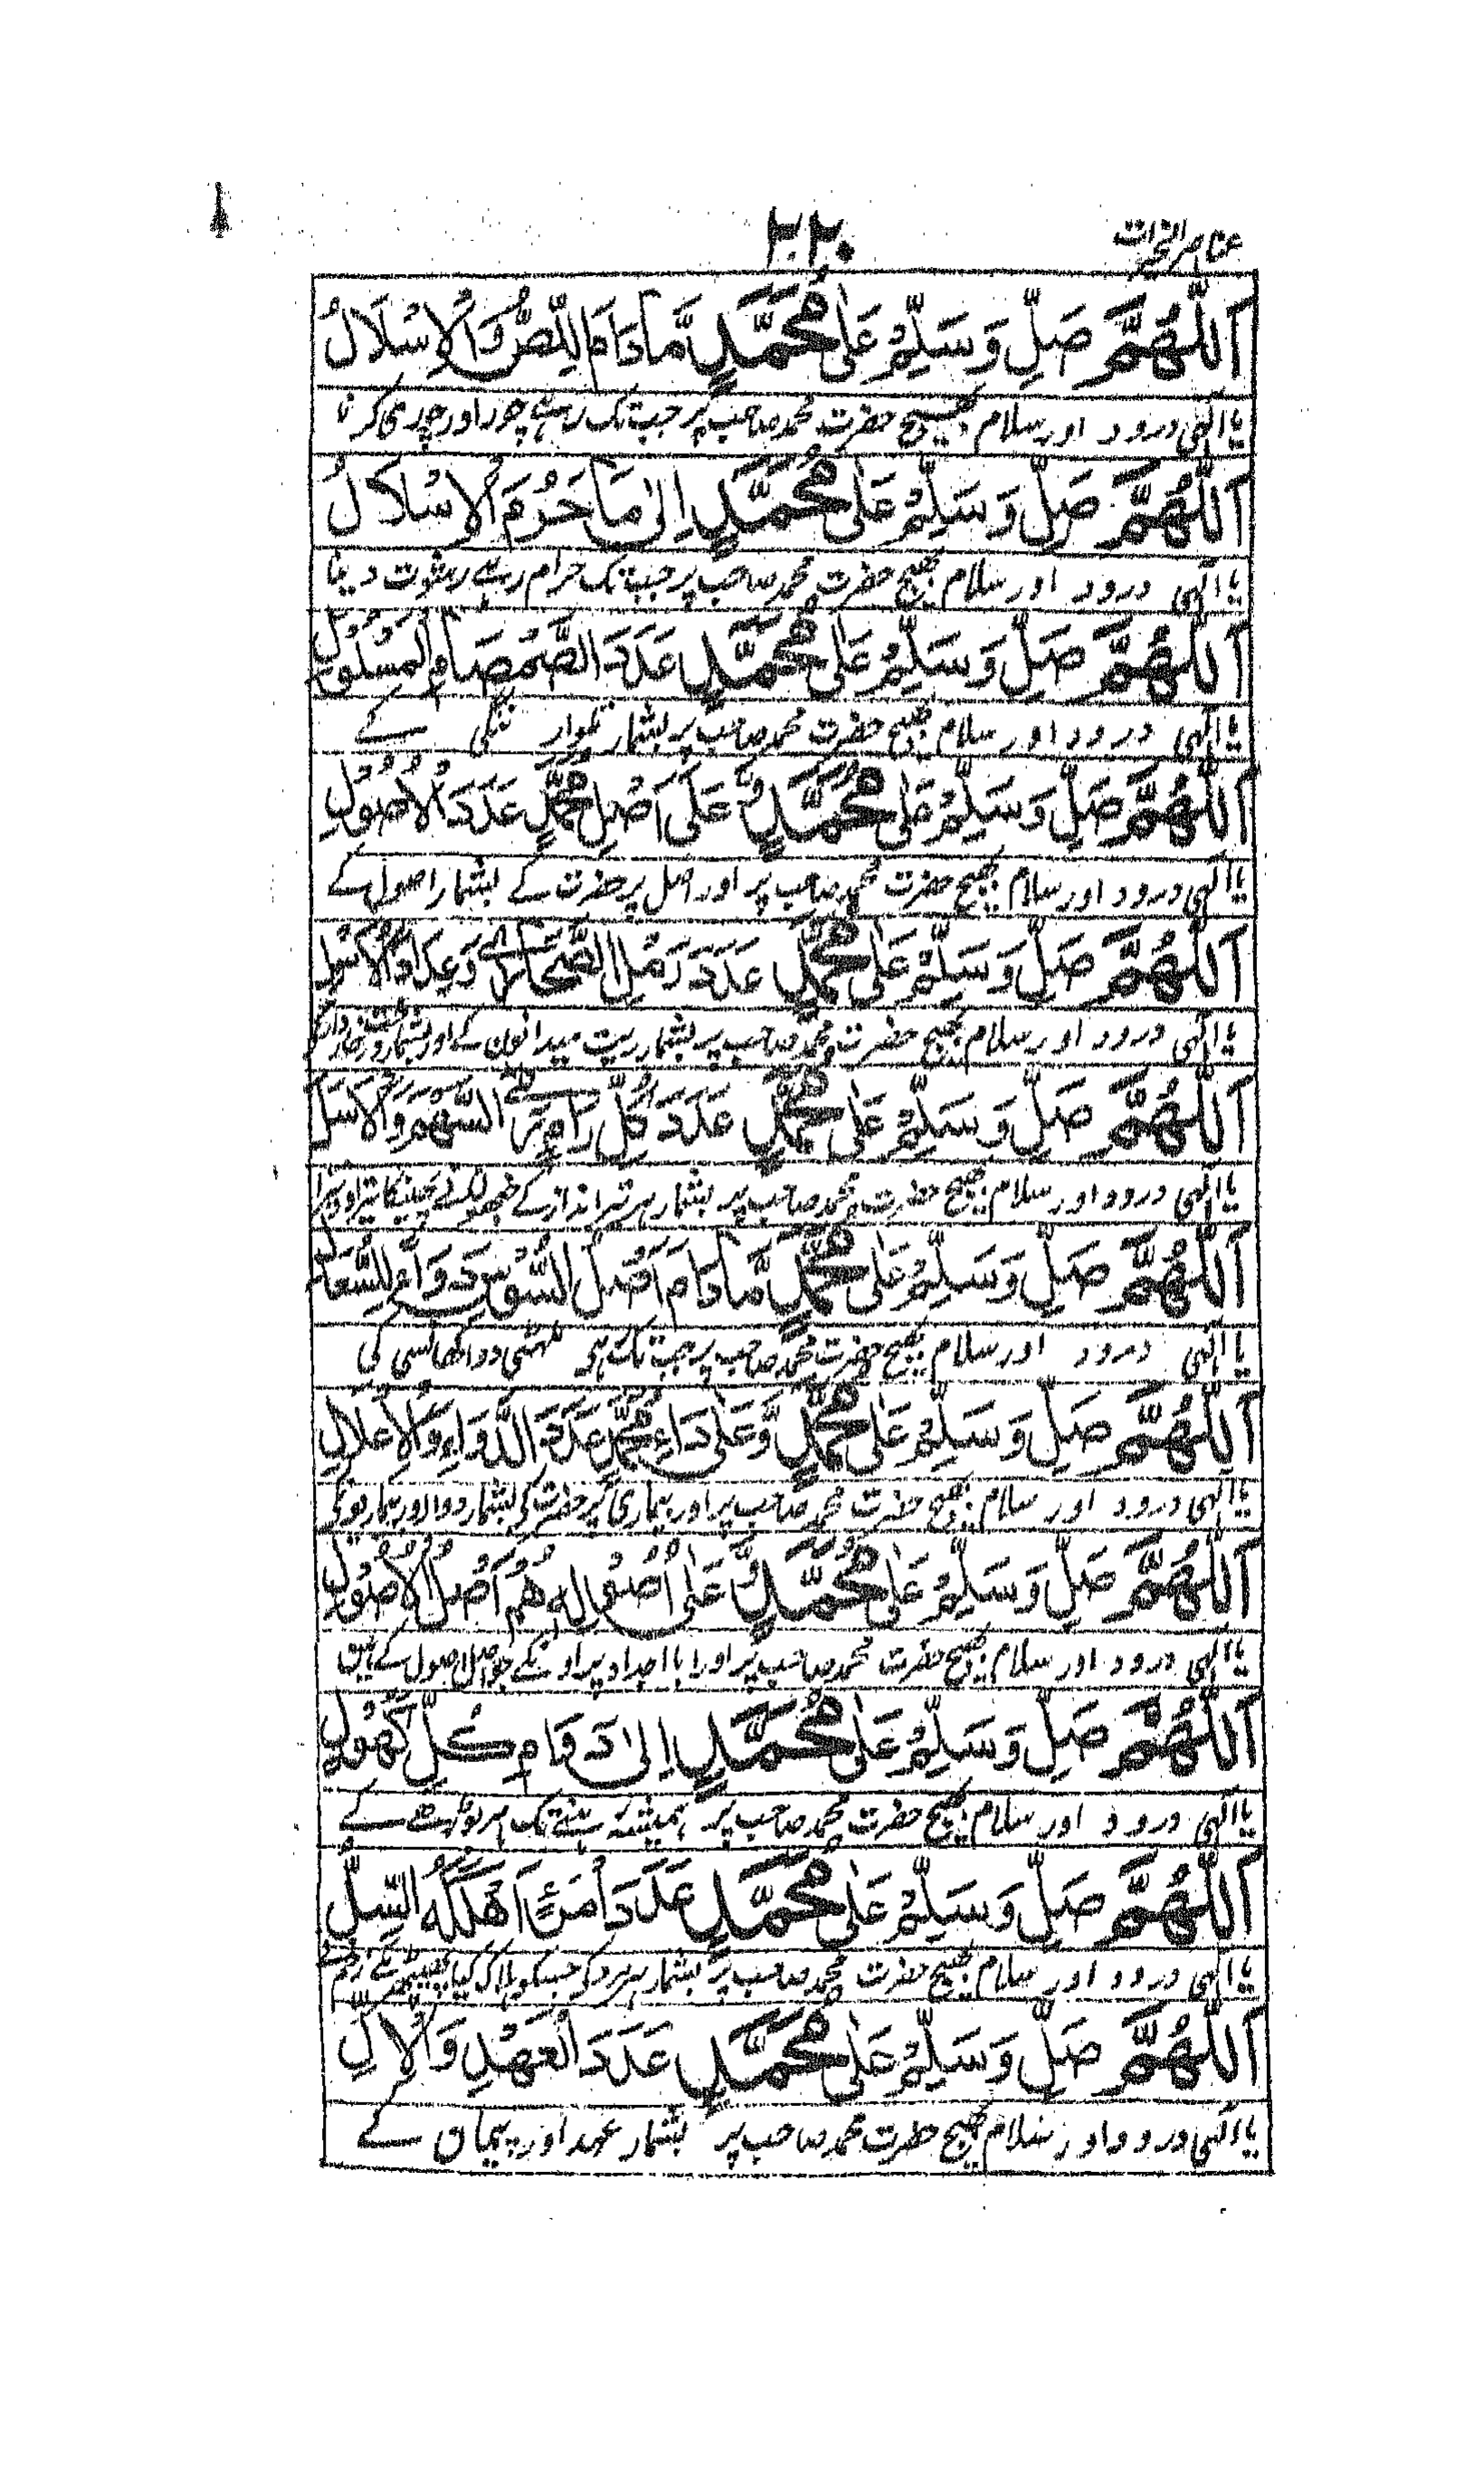 عناصر الخیرات
۲۲۰
اَللّٰهُمَّ صَلِّ وَسَلِّمْ عَلٰى مُحَمَّدٍ مَّا دَامَ اللِّصُّ وَالْاِسْلَالُ
یا الٰہی درود اور سلام بھیج حضرت محمد صاحب پر جب تک رہے چور اور چوری کرنا
اَللّٰهُمَّ صَلِّ وَسَلِّمْ عَلٰى مُحَمَّدٍ اِلٰى مَا حَرُمَ الْاِسْلَالُ
یا الٰہی درود اور سلام بھیج حضرت محمد صاحب پر جب تک حرام رہے رشوت دینا
اَللّٰهُمَّ صَلِّ وَسَلِّمْ عَلٰى مُحَمَّدٍ عَدَدَ الصَّمْصَامِ الْمَسْلُوْلِ
یا الٰہی درود اور سلام بھیج حضرت محمد صاحب پر بشمار تلوار ننگی کے
اَللّٰهُمَّ صَلِّ وَسَلِّمْ عَلٰى مُحَمَّدٍ وَّ عَلٰى اَصْلِ مُحَمَّدٍ عَدَدَ الْاُصُوْلِ
یا الٰہی درود اور سلام بھیج حضرت محمد صاحب پر اور اصل پر حضرت کے بشمار اصول کے
اَللّٰهُمَّ صَلِّ وَسَلِّمْ عَلٰى مُحَمَّدٍ عَدَدَ رَمْلِ الصَّحَارٰى وَعِدَادَ
یا الٰہی درود اور سلام بھیج حضرت محمد صاحب پر بشمار ریت میدانوں کے اور بشمار
اَللّٰهُمَّ صَلِّ وَسَلِّمْ عَلٰى مُحَمَّدٍ عَدَدَ كُلِّ رَامٍ السَّهْمَ وَالْاَسَلَ
یا الٰہی درود اور سلام بھیج حضرت محمد صاحب پر بشمار ہر تیر انداز کے
اَللّٰهُمَّ صَلِّ وَسَلِّمْ عَلٰى مُحَمَّدٍ مَّا دَامَ اَصْلُ السُّوْسِ دَوَآءً لِلسُّعَالِ
یا الٰہی درود اور سلام بھیج حضرت محمد صاحب پر جب تک ہو ملہٹی دوا کھانسی کی
اَللّٰهُمَّ صَلِّ وَسَلِّمْ عَلٰى مُحَمَّدٍ وَّعَلٰى دَاءِ مُحَمَّدٍ عَدَدَ الدَّوَاءِ وَالْاِعْلَالِ
یا الٰہی درود اور سلام بھیج حضرت محمد صاحب پر اور بیماری پر حضرت کی بشمار دوا اور بیماریوں کی
اَللّٰهُمَّ صَلِّ وَسَلِّمْ عَلٰى مُحَمَّدٍ وَّ عَلٰى اُصُوْلِهٖ هُمْ اَصْلُ الْاُصُوْلِ
یا الٰہی درود اور سلام بھیج حضرت محمد صاحب پر اور ابا اجداد پر اونکے جو اصل اصول کے ہیں
اَللّٰهُمَّ صَلِّ وَسَلِّمْ عَلٰى مُحَمَّدٍ اِلٰى دَوَامِ كُلِّ كَهُوْلٍ
یا الٰہی درود اور سلام بھیج حضرت محمد صاحب پر ہمیشہ رہنے تک ہر بوڑھے کے
اَللّٰهُمَّ صَلِّ وَسَلِّمْ عَلٰى مُحَمَّدٍ عَدَدَ اَهْلَكَهُ السِّلُّ
یا الٰہی درود اور سلام بھیج حضرت محمد صاحب پر بشمار ہر مرد کی جسکو ہلاک کیا
اَللّٰهُمَّ صَلِّ وَسَلِّمْ عَلٰى مُحَمَّدٍ عَدَدَ الْعَهْدِ وَالْاِلِّ
یا الٰہی درود اور سلام بھیج حضرت محمد صاحب پر بشمار عہد اور پیمان کے